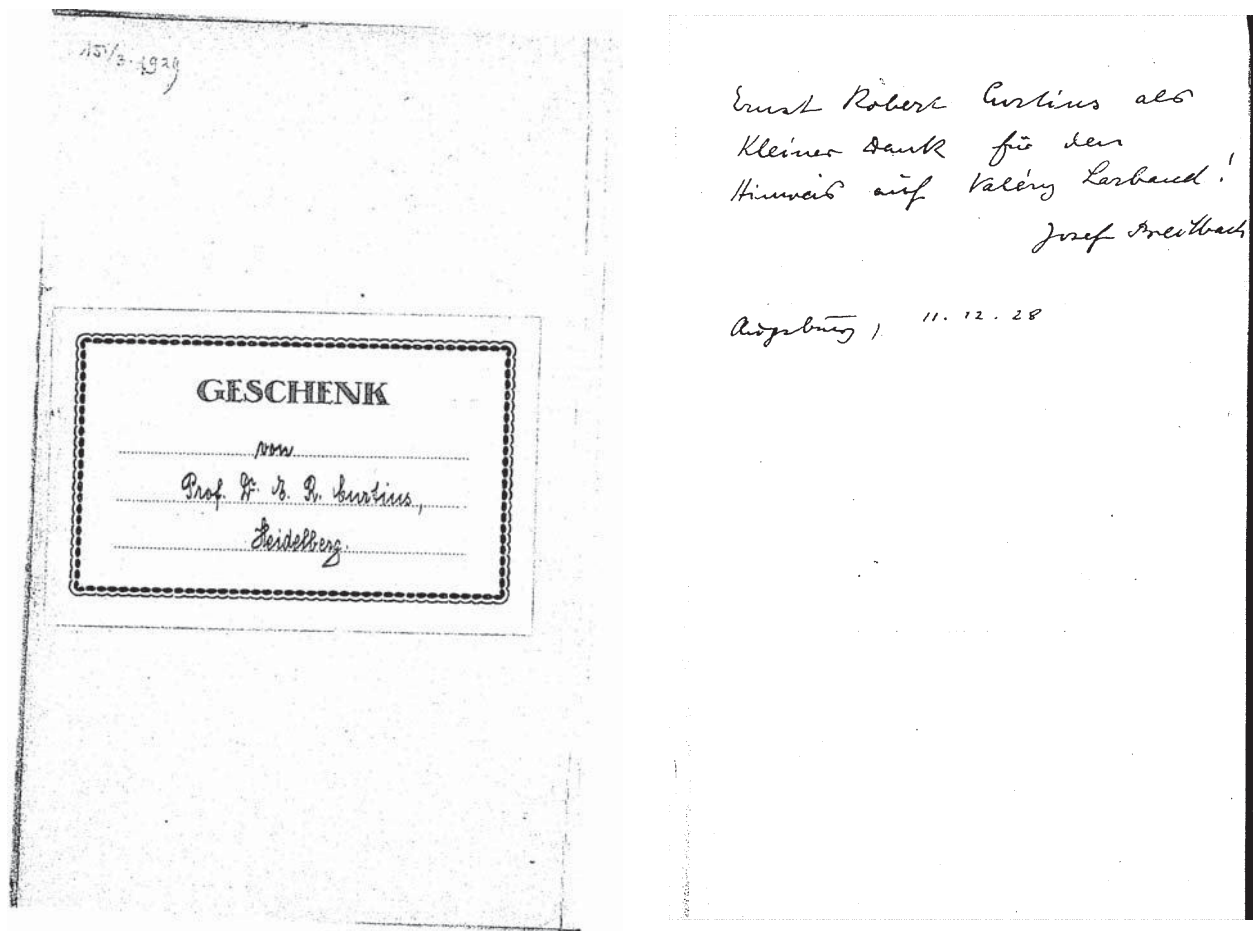 15/3. 1929
GESCHENK
von
Prof. Dr. E. R. Curtius,
Heidelberg.
Ernst Robert Curtius als
Kleiner Dank für den
Hinweis auf Valéry Larbaud!
Josef Breitbach
Augsburg, 11. 12. 28